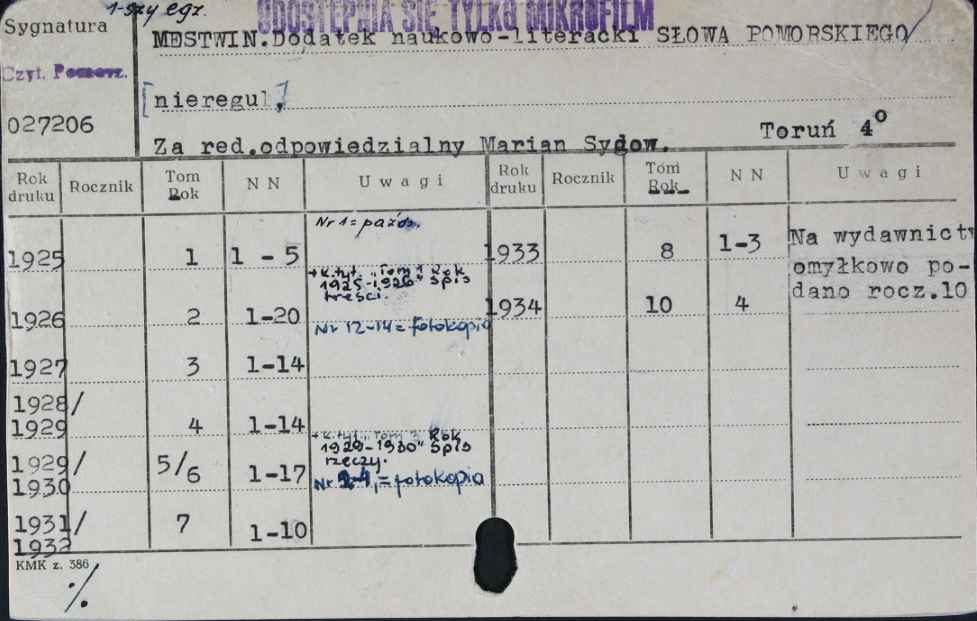 1-szy egz.
UDOSTĘPNIA SIĘ TYLKO MIKROFILM
Sygnatura
MESTWIN. Dodatek naukowo-literacki SŁOWA POMORSKIEGO
Czyt. Pomorz.
[nieregul.]
027206
Toruń 4°
Za red.odpowiedzialny Marian Sydow.
Rok druku | Rocznik | Tom Rok | N N | Uwagi | Rok druku | Rocznik | Tom Rok | N N | Uwagi
Nr 1 = paźdz.
1925 | 1 | 1 - 5 | 1933 | 8 | 1-3 | Na wydawnictw
+ k.tyt. "Tom 1 Rok
omyłkowo po-
1925-1926" Spis
treści.
dano rocz.10
1926 | 2 | 1-20 | 1934 | 10 | 4
Nr 12-14 = fotokopia
1927 | 3 | 1-14
1928/
1929 | 4 | 1-14
+ k.tyt. "Tom 3 Rok
1929-1930" Spis
rzeczy.
1929/
1930 | 5/6 | 1-17
= fotokopia
1931/
1932 | 7 | 1-10
KMK z. 386
./.